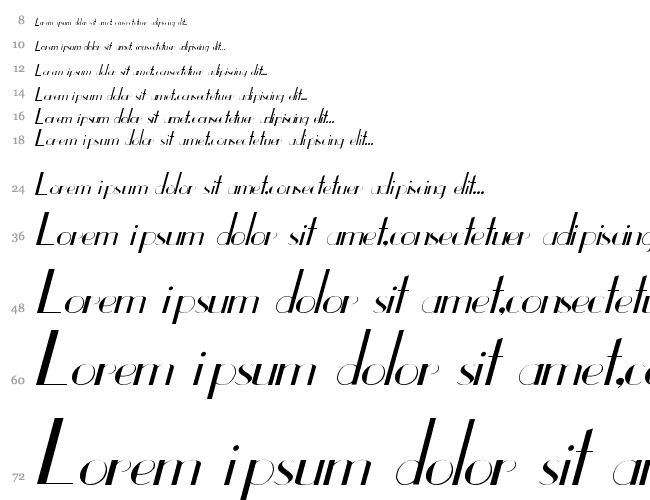 8 Lorem ipsum dolor sit amet, consectetuer adipiscing elit...
10 Lorem ipsum dolor sit amet, consectetuer adipiscing elit...
12 Lorem ipsum dolor sit amet,consectetuer adipiscing elit...
14 Lorem ipsum dolor sit amet,consectetuer adipiscing elit...
16 Lorem ipsum dolor sit amet,consectetuer adipiscing elit...
18 Lorem ipsum dolor sit amet,consectetuer adipiscing elit...
24 Lorem ipsum dolor sit amet,consectetuer adipiscing elit...
36 Lorem ipsum dolor sit amet,consectetuer adipiscing
48 Lorem ipsum dolor sit amet,consectetu
60 Lorem ipsum dolor sit amet,co
72 Lorem ipsum dolor sit am